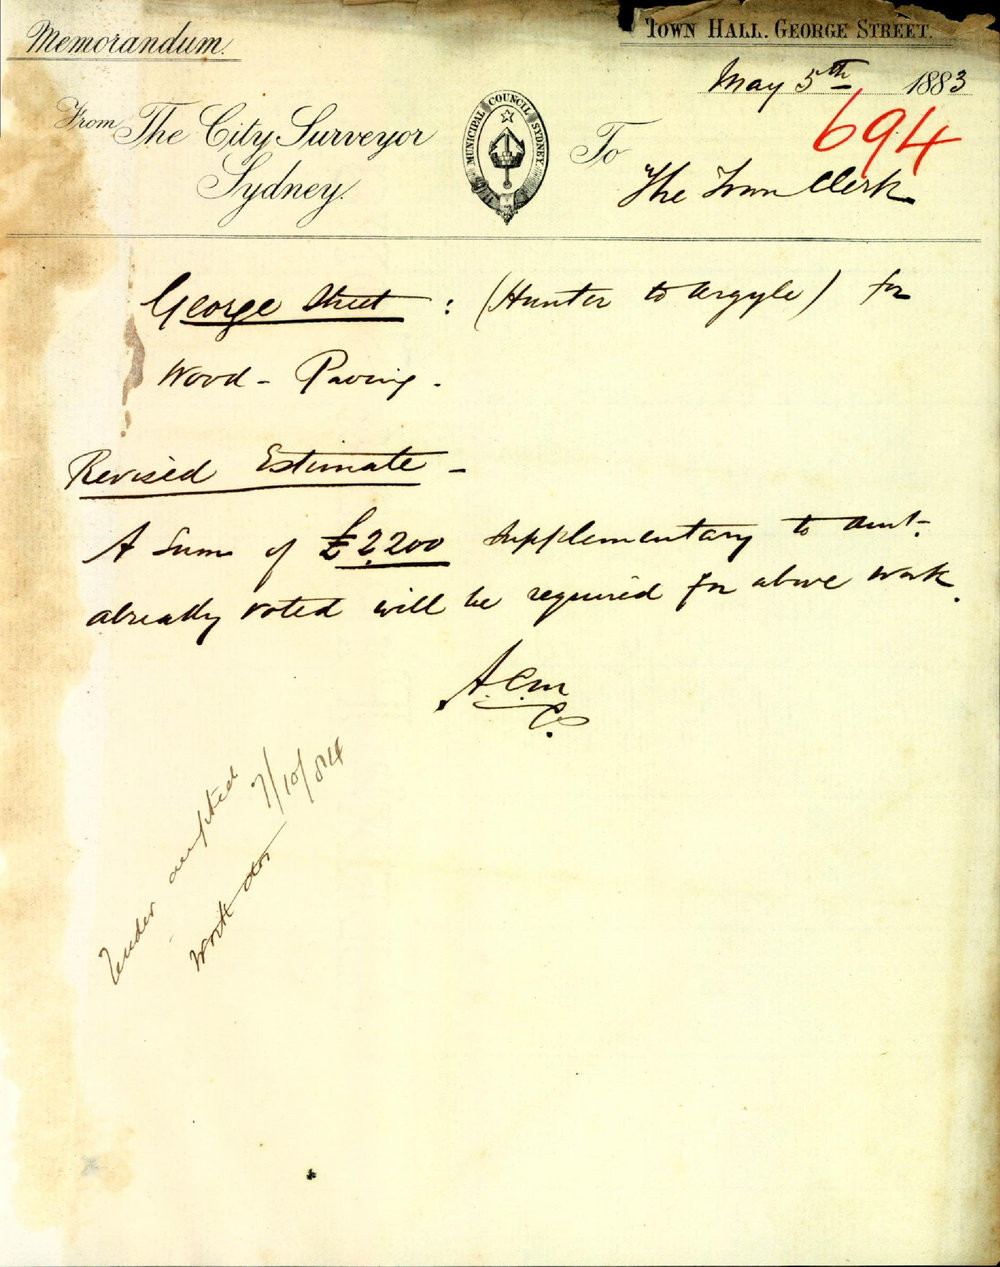 Memorandum.
TOWN HALL. GEORGE STREET.
May 5th 1883
694
From The City Surveyor
Sydney.
MUNICIPAL COUNCIL SYDNEY
To
The Town Clerk.
George Street : (Hunter to Argyle) for
Wood - Paving.
Revised Estimate -
A Sum of £2,200 supplementary to amt.
already voted will be required for above work.
A.C.M
C.S
Tender accepted 7/10/84
Work